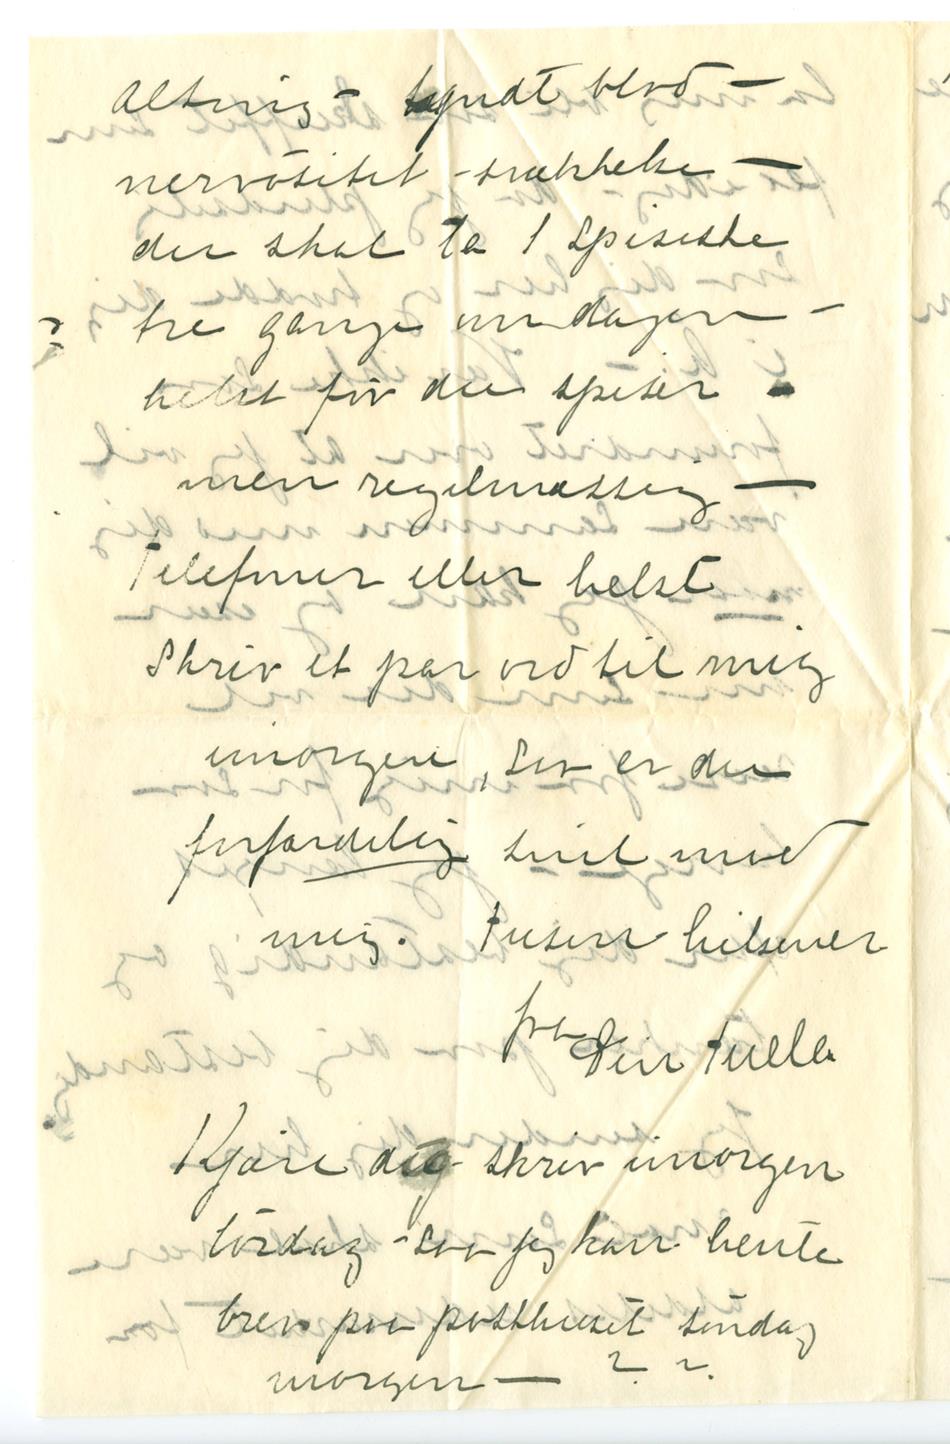 Alting – tyndt blod –
nervøsitet – svækkelse –
du skal ta 1 spiseske
tre gange om dagen –
helst før du spiser –
men regelmæssig –
Telefoner eller helst
skriv et par ord til mig
imorgen, er du
forfærdelig snil mod
mig. Tusen hilsener
fra Din Tulla
Kjære dig skriv imorgen
lørdag – saa jeg kan hente
brev paa posthuset søndag
morgen – ? ?